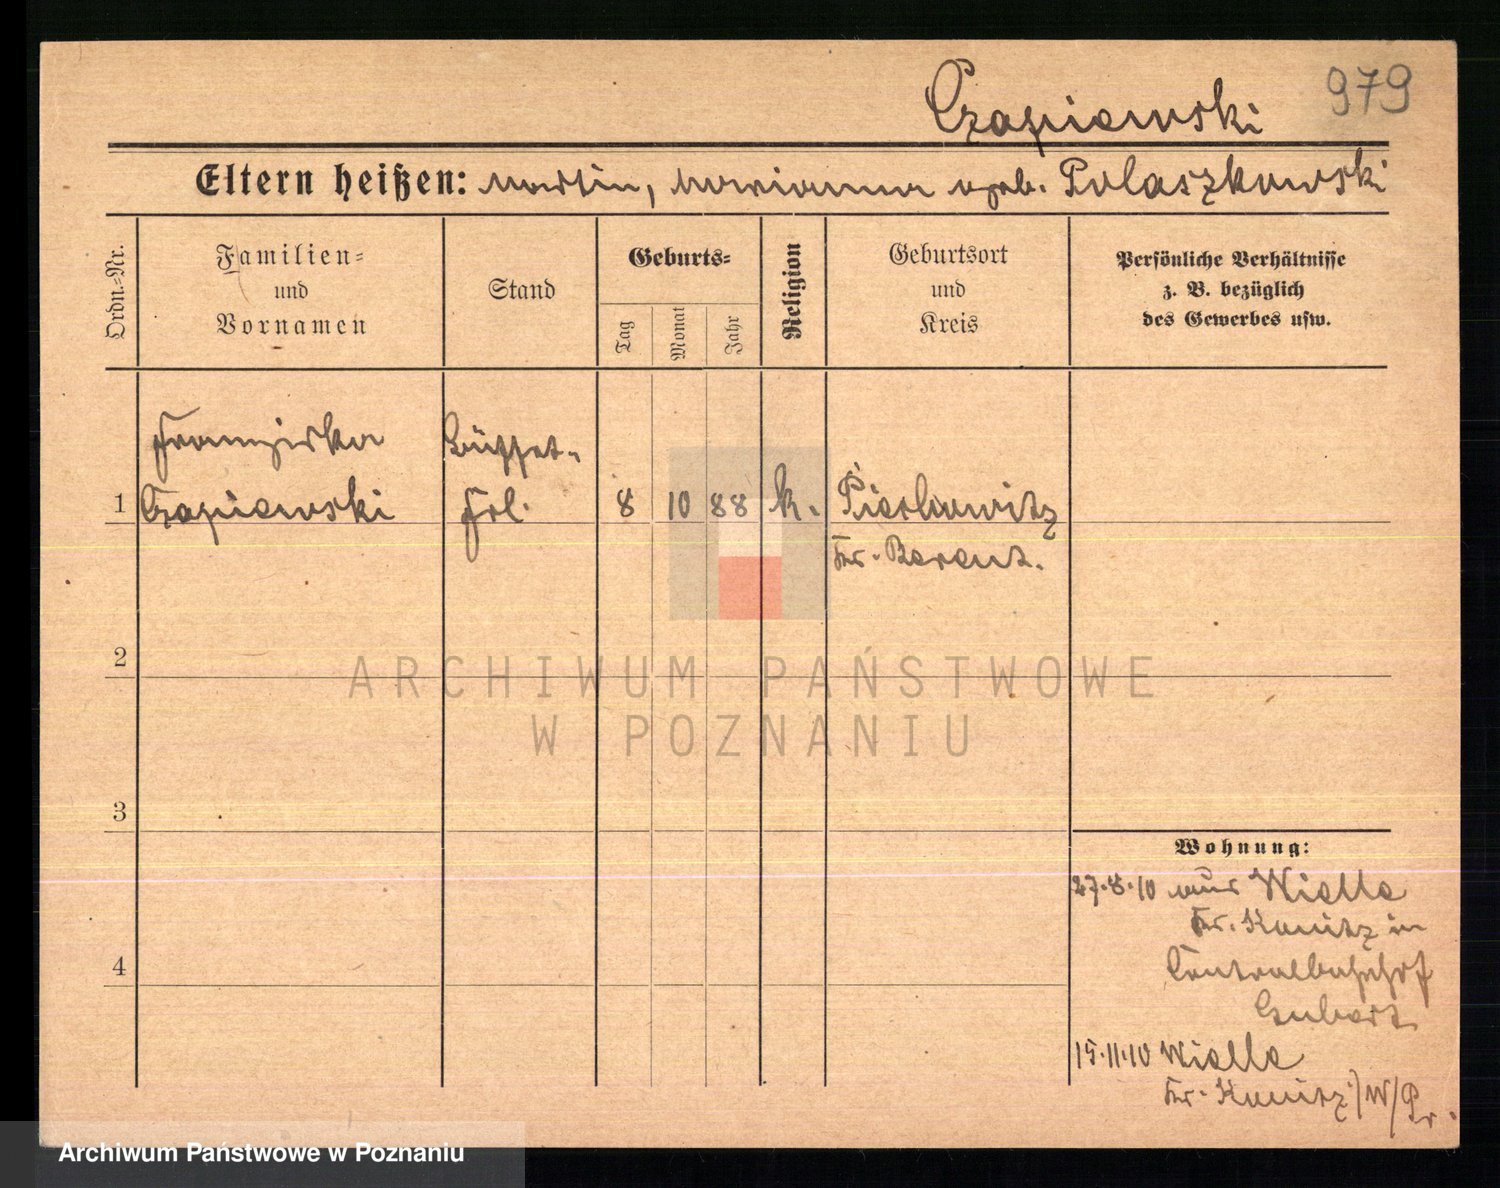 979
Czapiewski
Eltern heißen: Martin, Marianna geb. Polaszkowski
Ordn.-Nr.
Familien-
und
Vornamen
Stand
Geburts-
Tag
Monat
Jahr
Religion
Geburtsort
und
Kreis
Persönliche Verhältnisse
z. B. bezüglich
des Gewerbes usw.
Franziska
Büffet-
1 Czapiewski Frl. 8 10 88 k.
Kr. Berent.
2
ARCHIWUM PAŃSTWOWE
W POZNANIU
3
Wohnung:
27.8.10 aus Wielle
Kr. Konitz in
Centralbahnhof
4
15.11.10 Wielle
Kr. Konitz W/Pr.
Archiwum Państwowe w Poznaniu